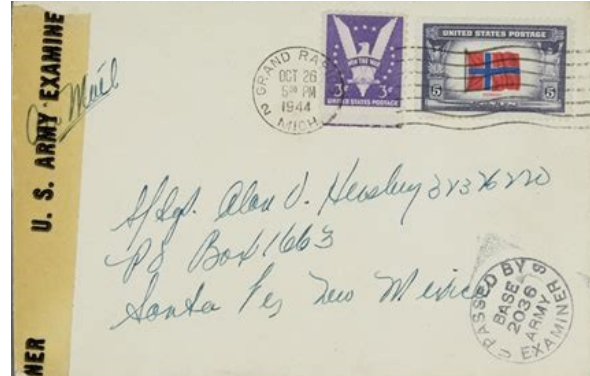 U. S. ARMY EXAMINE
NER
Mail
GRAND RAPI
OCT 26
5 PM
1944
2 MICH.
WIN THE WAR
3¢ 3¢
UNITED STATES POSTAGE
UNITED STATES POSTAGE
5 5
S/Sgt. Alan V.
PO Box 1663
Santa Fe, New Mexico
PASSED BY
BASE
2036
ARMY
EXAMINER S